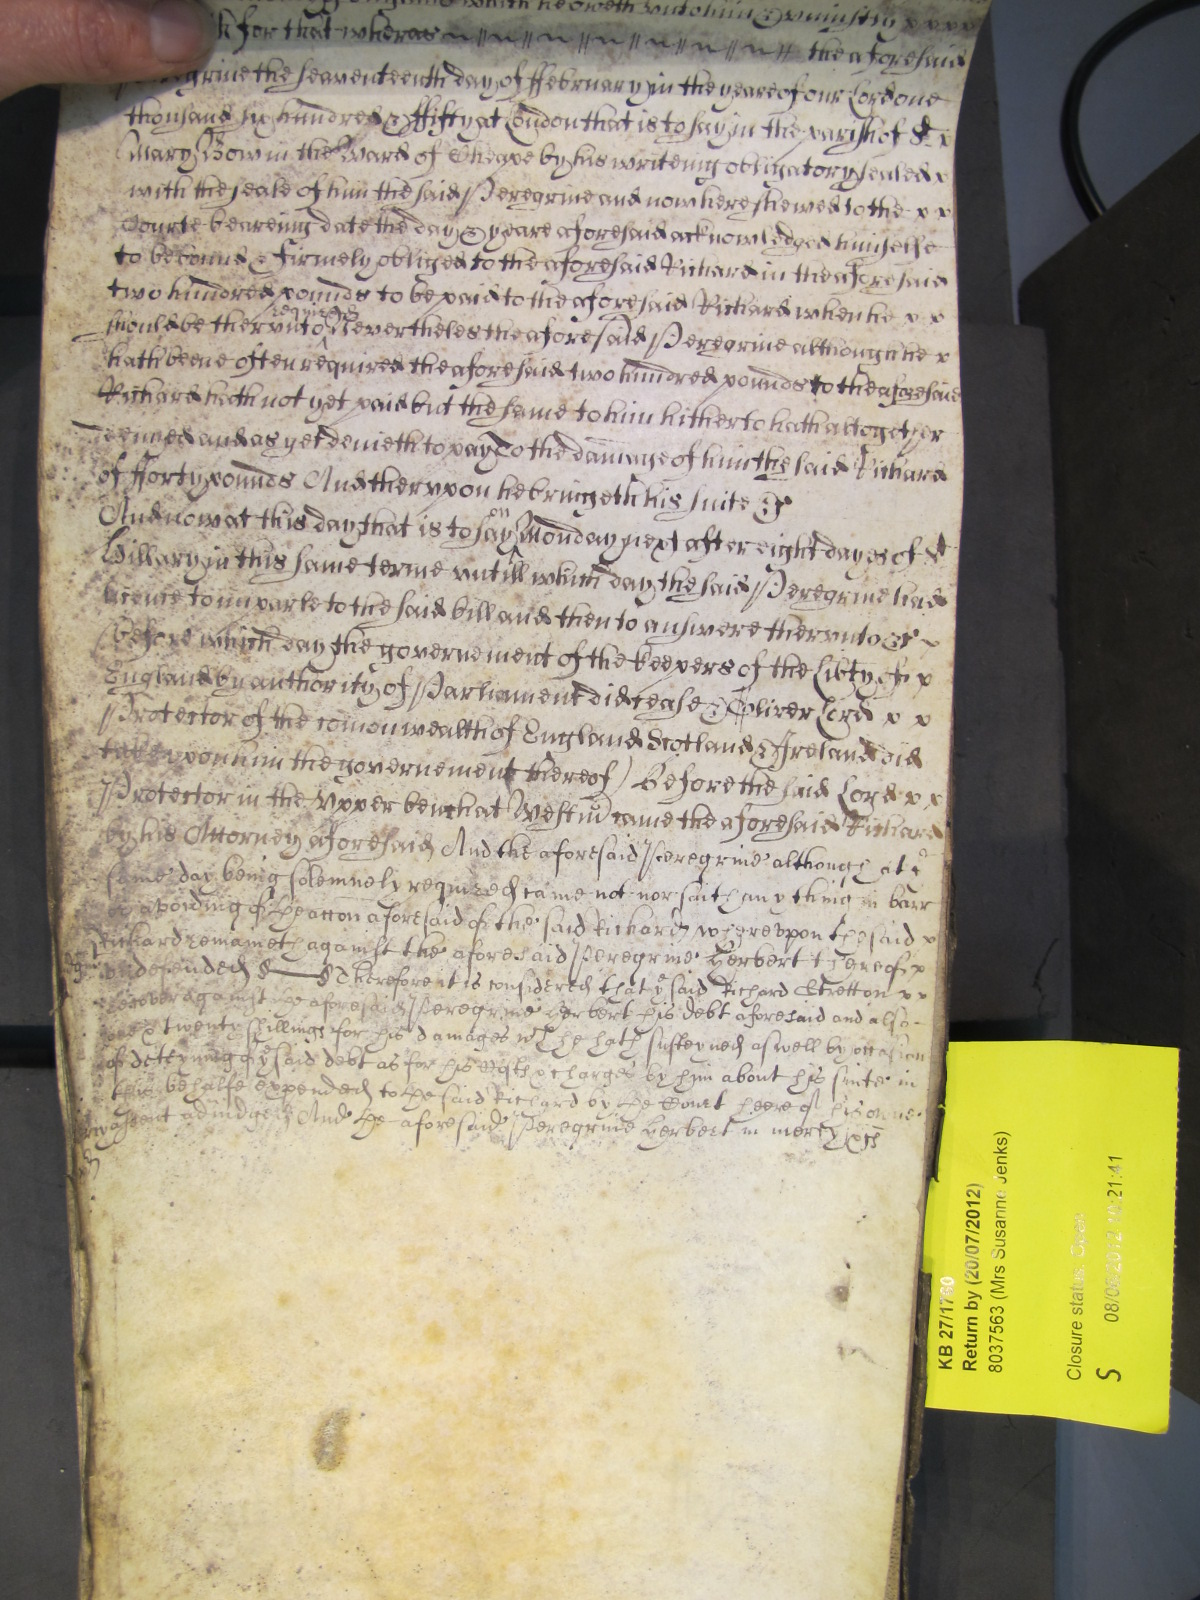 of England which he oweth unto him & uniustly x x x x
for that wheras the aforesaid
Peregrine the seaventeenth day of ffebruary in the yeare of our Lord one
thousand six hundred & ffifty at London that is to say in the parish of St x
Mary Bow in the Ward of Cheape by his writeing obligatory sealed x
with the seale of him the said Peregrine and now here shewed to the x x
Courte beareing date the day & yeare aforesaid acknowledged himselfe
to be bound & firmely obliged to the aforesaid Richard in the aforesaid
two hundred pounds to be paid to the aforesaid Richard when he x x
should be therunto required Nevertheles the aforesaid Peregrine although he x
hath beene often required the aforesaid two hundred pounds to the aforesaid
Richard hath not yet paid but the same to him hitherto hath altogether
denied and as yet denieth to pay To the damage of him the said Richard
of fforty pounds And therupon he bringeth his suite &c
And now at this day that is to say on Monday next after eight dayes of St
Hillary in this same terme untill which day the said Peregrine had
licence to imparle to the said bill and then to answere therunto &c x
(before which day the governement of the keepers of the Libty of x
England by authority of Parliament did cease & Oliver Lord x x
Protector of the comonwealth of England Scotland & Ireland did
take upon him the governement thereof) Before the said Lord x x
Protector in the Upper bench at Westm came the aforesaid Richard
by his Attorney aforesaid And the aforesaid Peregrine although at ye
same day being solemnely required came not nor saith any thing in barr
or avoiding of the accon aforesaid of the said Richard wherevpon the said x
Richard remaineth against the aforesaid Peregrine Herbert thereof x
undefended &c Therefore it is considered that ye said Richard Stretton x x
recover against the aforesaid Peregrine Herbert his debt aforesaid and also
twenty shillings for his damages wch he hath susteyned aswell by occasion
of deteyning ye said debt as for his costs & charges by him about his suite in
this behalfe expended to the said Richard by the Court heere of his owne
assent adiudged And the aforesaid Peregrine Herbert in mercy &c
KB 27/1760
Return by (20/07/2012)
8037563 (Mrs Susanne Jenks)
Closure status: Open
S
08/06/2012 10:21:41